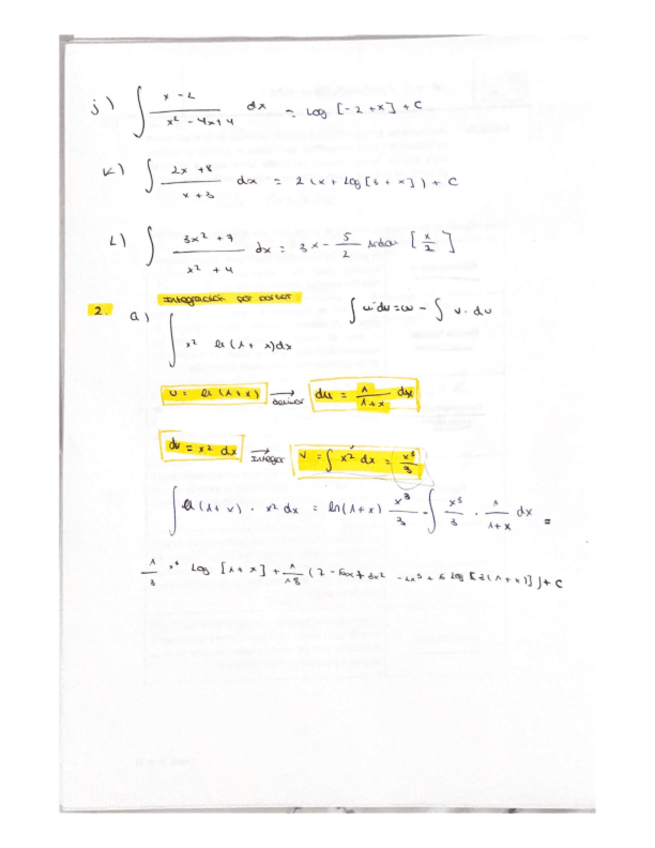 j) ∫ x - 2 / x² - 4x + 4 dx = Log [-2 + x] + C
K) ∫ 2x + 8 / x + 3 dx = 2 (x + Log [3 + x]) + C
L) ∫ 3x² + 7 / x² + 4 dx = 3x - 5/2 [x/2]
2. a) Integración por partes ∫ u · dv = uv - ∫ v · du
∫ x² ln (1 + x) dx
u = ln (1 + x) → derivar du = 1 / 1 + x dx
dv = x² dx → Integrar v = ∫ x² dx = x³/3
∫ ln (1 + x) · x² dx = ln (1 + x) x³/3 - ∫ x³/3 · 1 / 1 + x dx =
1/3 x³ Log [1 + x] + 1/18 ( - 6x + 3x² - 2x³ + 6 Log [ (1 + x)] ) + C